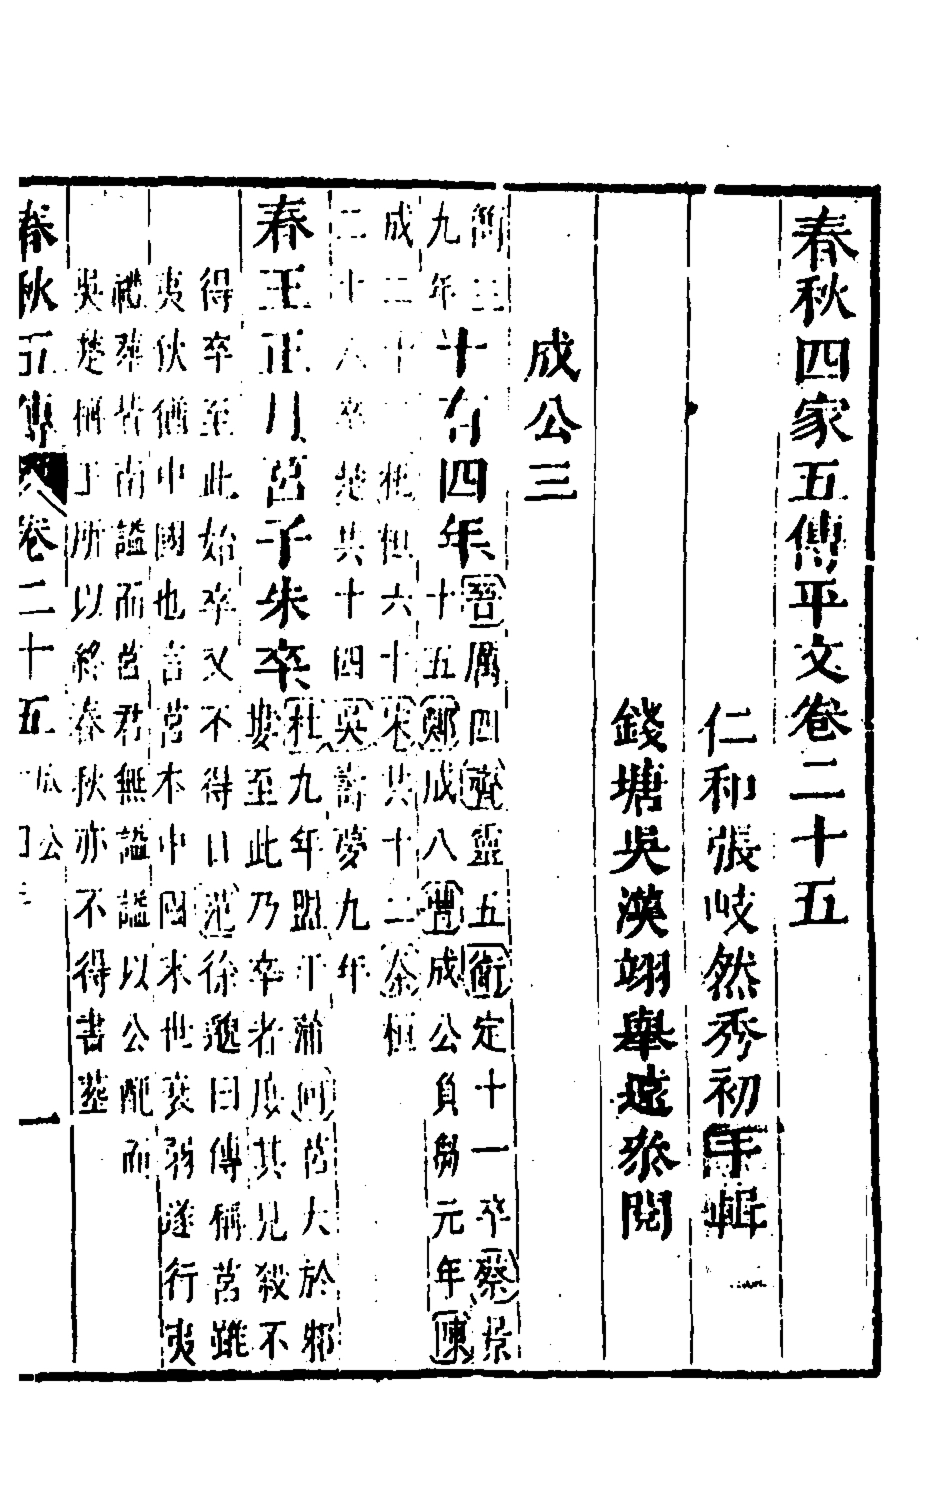 春秋四家五傳平文卷二十五
仁和張岐然秀初手輯
錢塘吳漢翊舉遠叅閱
成公三
簡王
九年
十有四年
晉厲四齊靈五衛定十一卒蔡景
十五鄭成八曹成公負芻元年陳
成二十一杞桓六十宋共十二秦桓
二十八卒楚共十四吳壽夢九年
春王正月莒子朱卒
杜九年盟于蒲何莒大於邾
婁至此乃卒者庶其見殺不
得卒至此始卒又不得日范徐邈曰傳稱莒雖
夷狄猶中國也言莒本中國末世衰弱遂行夷
禮葬皆謚而莒君無謚謚以公配而
吳楚稱王所以終春秋亦不得書塟
春秋五傳 卷二十五 成公 一